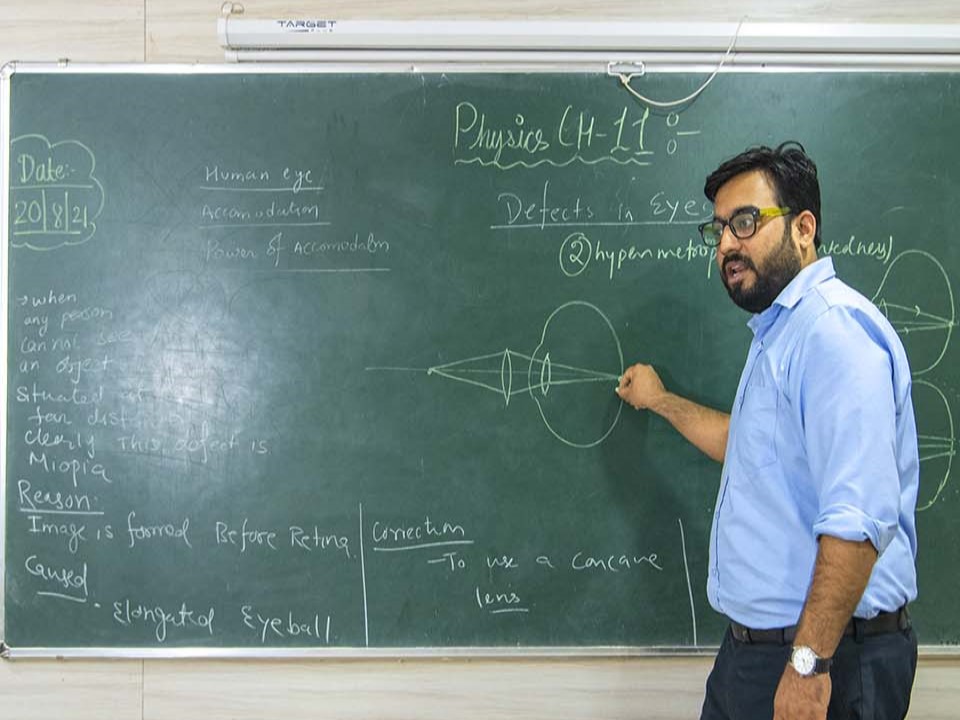 TARGET
Physics CH-11 :-
Date:-
20/8/21
Human eye
Accomodation
Power of Accomodatn
Defects in Eye
② hypermetrop
wedness)
→ when
any person
cannot see
an object
Situated at
far dist
clearly This defect is
Miopia
Reason:
Image is formed Before Retina
Caused
• Elongated Eyeball.
Correction
- To use a concave
lens